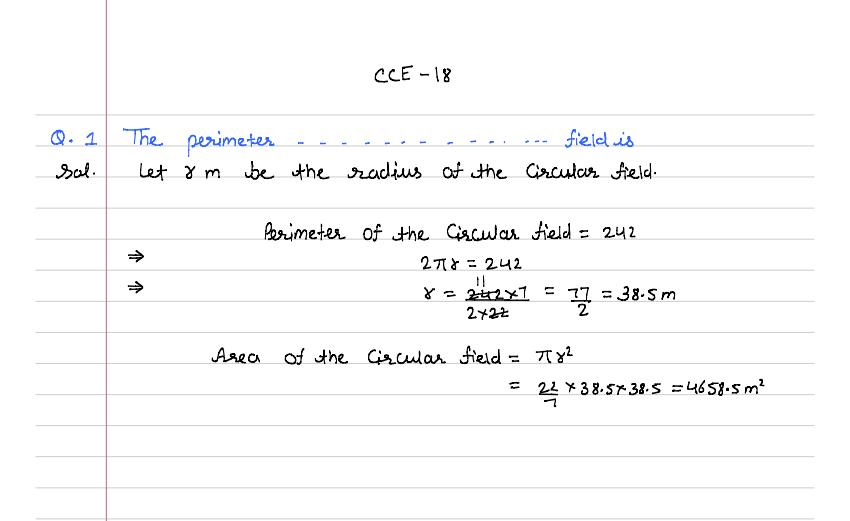 CCE - 18
Q. 1 The perimeter - - - - - - - - - - - --- field is
Sol. Let r m be the radius of the Circular field.
Perimeter of the Circular field = 242
⇒ 2πr = 242
⇒ r = 11 242×7 / 2×22 = 77/2 = 38.5 m
Area of the Circular field = πr²
= 22/7 × 38.5 × 38.5 = 4658.5 m²